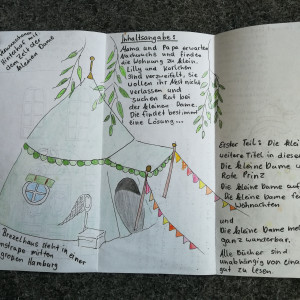 Hinterhof mit
dem Zelt der
kleinen Dame
Inhaltsangabe:
Mama und Papa erwarten
Nachwuchs und finden
die Wohnung zu klein.
Lilly und Karlchen
sind verzweifelt, sie
wollen ihr Nest nicht
verlassen und
suchen Rat bei
der kleinen Dame.
Die findet bestimmt
eine Lösung...
Erster Teil: Die kleine
weitere Titel in dieser
Die kleine Dame u
Rote Prinz
Die kleine Dame auf
Die kleine Dame fe
Weihnachten
und
Die kleine Dame me
ganz wunderbar.
Alle Bücher sind
unabhängig von eina
gut zu lesen.
Brezelhaus steht in einer
nstraße mitten
großen Hamburg